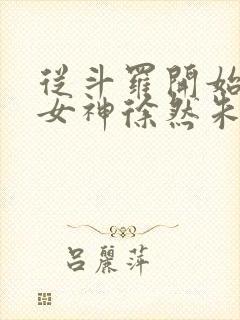 從斗羅開始
女神徐然朱
呂麗萍